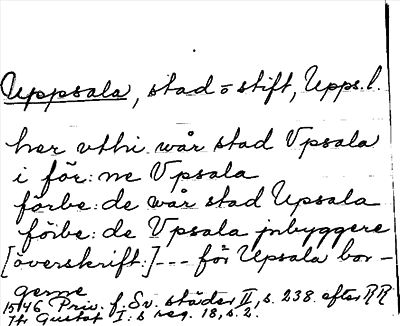 Uppsala, stad o stift, Upps. l.
her vthi wår stad Vpsala
i för: ne Vpsala
förbe: de wår stad Upsala
förbe: de Vpsala jnbyggere
[överskrift:] --- för Upsala bor-
gerne
1546 Priv. f. Sv. städer II, s. 238. efter RR
Gustaf I: s reg. 18, s. 2.